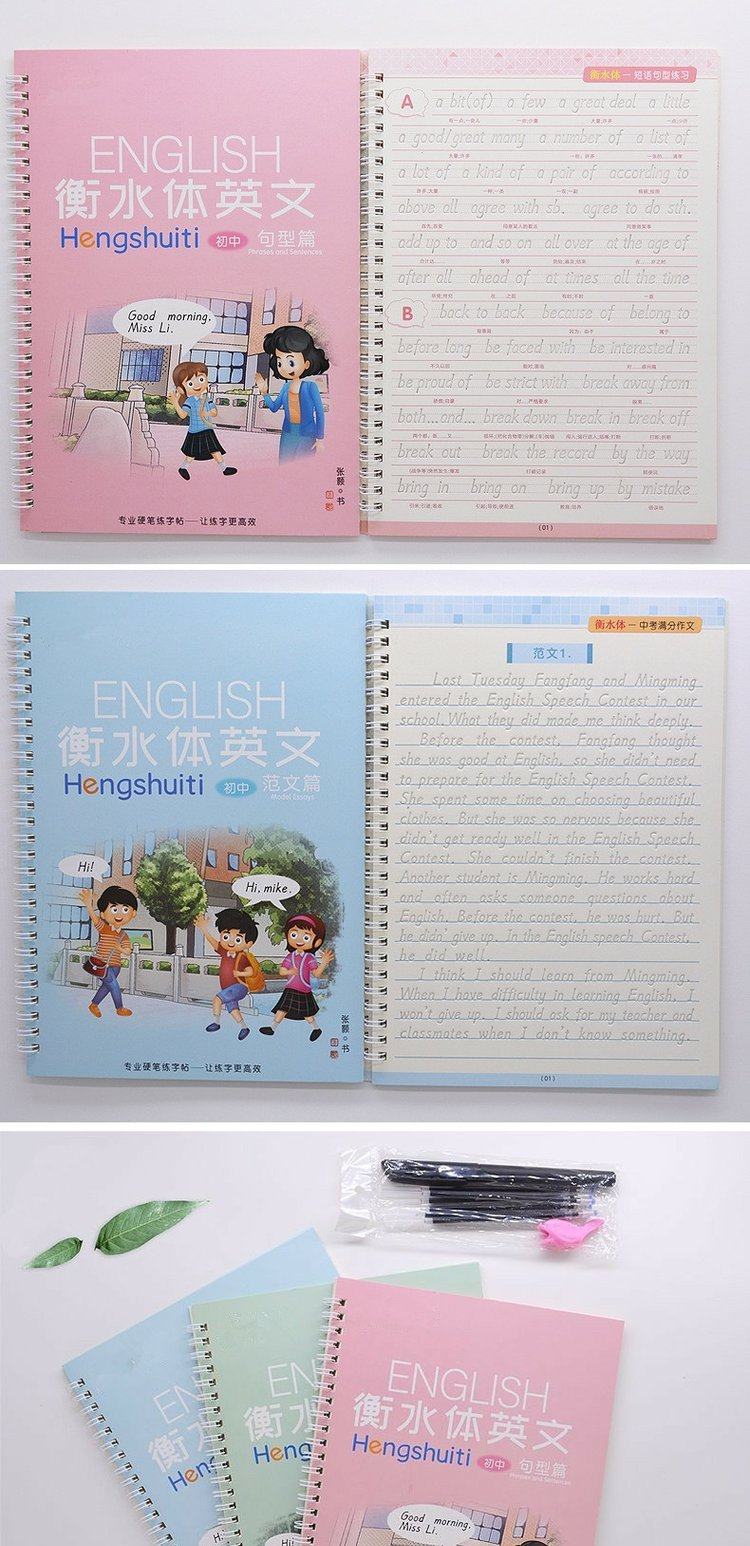 ENGLISH
衡水体英文
Hengshuiti 初中 句型篇
Phrases and Sentences
Good morning,
Miss Li.
张颢。书
专业硬笔练字帖——让练字更高效
衡水体—短语句型练习
A a bit(of) a few a great deal a little
有一点;一会儿 一些;少量 大量;许多 一点;少许
a good/great many a number of a list of
大量;许多 一些;许多 一张的……清单
a lot of a kind of a pair of according to
许多;大量 一种;一类 一双;一副 根据;按照
above all agree with sb. agree to do sth.
首先;首要 同意某人的看法 同意做某事
add up to and so on all over at the age of
合计达…… 等等 到处;遍及;结束 在……岁之时
after all ahead of at times all the time
毕竟;终究 在……之前 有时;不时 一直
B back to back because of belong to
背靠背 因为;由于 属于
before long be faced with be interested in
不久以后 面对;面临 对……感兴趣
be proud of be strict with break away from
骄傲;自豪 对……严格要求 脱离……
both...and... break down break in break off
打断;折断
break out break the record by the way
(战争等)突然发生;爆发 打破记录 顺便说
bring in bring on bring up by mistake
引来;引进;吸收 引起;导致;使前进 教育;培养 错误地
(01)
ENGLISH
衡水体英文
Hengshuiti 初中 范文篇
Model Essays
Hi!
Hi, mike.
张颢。书
专业硬笔练字帖——让练字更高效
衡水体—中考满分作文
范文1.
Last Tuesday Fangfang and Mingming
entered the English Speech Contest in our
school. What they did made me think deeply.
Before the contest, Fangfang thought
she was good at English, so she didn't need
to prepare for the English Speech Contest.
She spent some time on choosing beautiful
clothes. But she was so nervous because she
didn't get ready well in the English Speech
Contest. She couldn't finish the contest.
Another student is Mingming. He works hard
and often asks someone questions about
English. Before the contest, he was hurt. But
he didn' give up. In the English speech Contest,
he did well.
I think I should learn from Mingming.
When I have difficulty in learning English, I
won't give up. I should ask for my teacher and
classmates when I don't know something.
(01)
EN
衡水
Heng
EN
衡水
Heng
ENGLISH
衡水体英文
Hengshuiti 初中 句型篇
Phrases and Sentences
Good morning,
Miss Li.